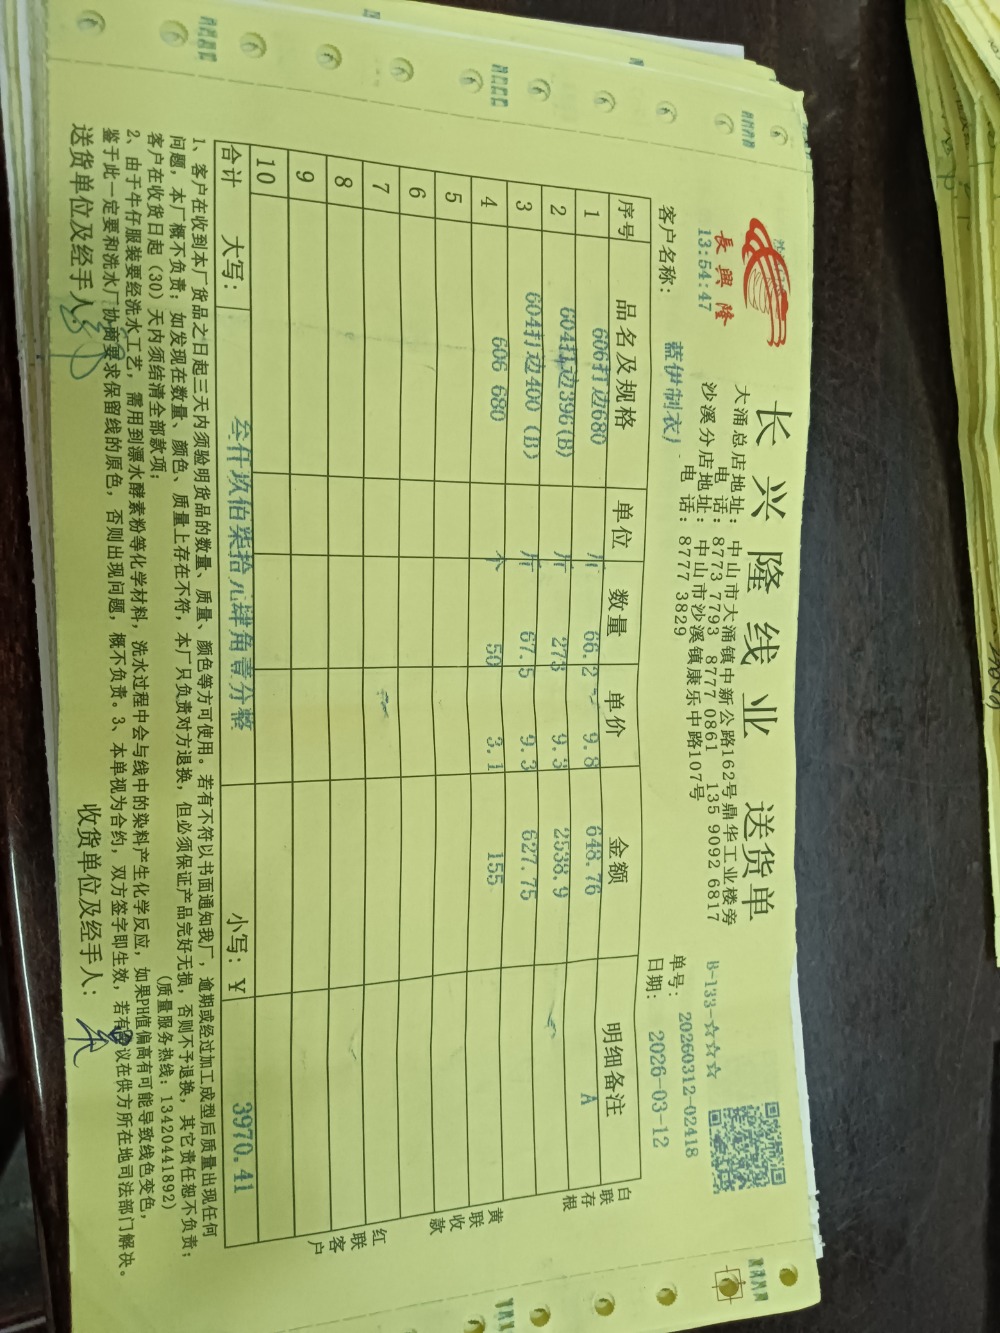 長興隆
长兴隆线业 送货单
大涌总店地址：中山市大涌镇中新公路162号鼎华工业楼旁
电 话：8773 7793 8777 0861 135 9092 6817
沙溪分店地址：中山市沙溪镇康乐中路107号
电 话：8777 3829
13:54:47
B-133-☆☆☆
单号：20260312-02418
客户名称：蓝伊制衣厂
日期：2026-03-12
序号 品名及规格 单位 数量 单价 金额 明细备注
1 606打边680 斤 66.2 9.8 648.76 A
2 604打边396(B) 斤 273 9.3 2538.9
3 604打边400 (B) 斤 67.5 9.3 627.75
4 606 680 个 50 3.1 155
5
6
7
8
9
10
合计 大写：叁仟玖佰柒拾元肆角壹分整 小写：¥ 3970.41
白联存根
黄联收款
红联客户
1、客户在收到本厂货品之日起三天内须验明货品的数量、质量、颜色等方可使用。若有不符以书面通知我厂，逾期或经过加工成型后质量出现任何
问题，本厂概不负责；如发现在数量、颜色、质量上存在不符，本厂只负责对方退换，但必须保证产品完好无损，否则不予退换，其它责任恕不负责；
客户在收货日起（30）天内须结清全部款项；
(质量服务热线：13420441892)
2、由于牛仔服装要经洗水工艺，需用到漂水酵素粉等化学材料，洗水过程中会与线中的染料产生化学反应，如果PH值偏高有可能导致线色变色，
鉴于此一定要和洗水厂协商要求保留线的原色，否则出现问题，概不负责。3、本单视为合约，双方签字即生效，若有争议在供方所在地司法部门解决。
送货单位及经手人：
收货单位及经手人：